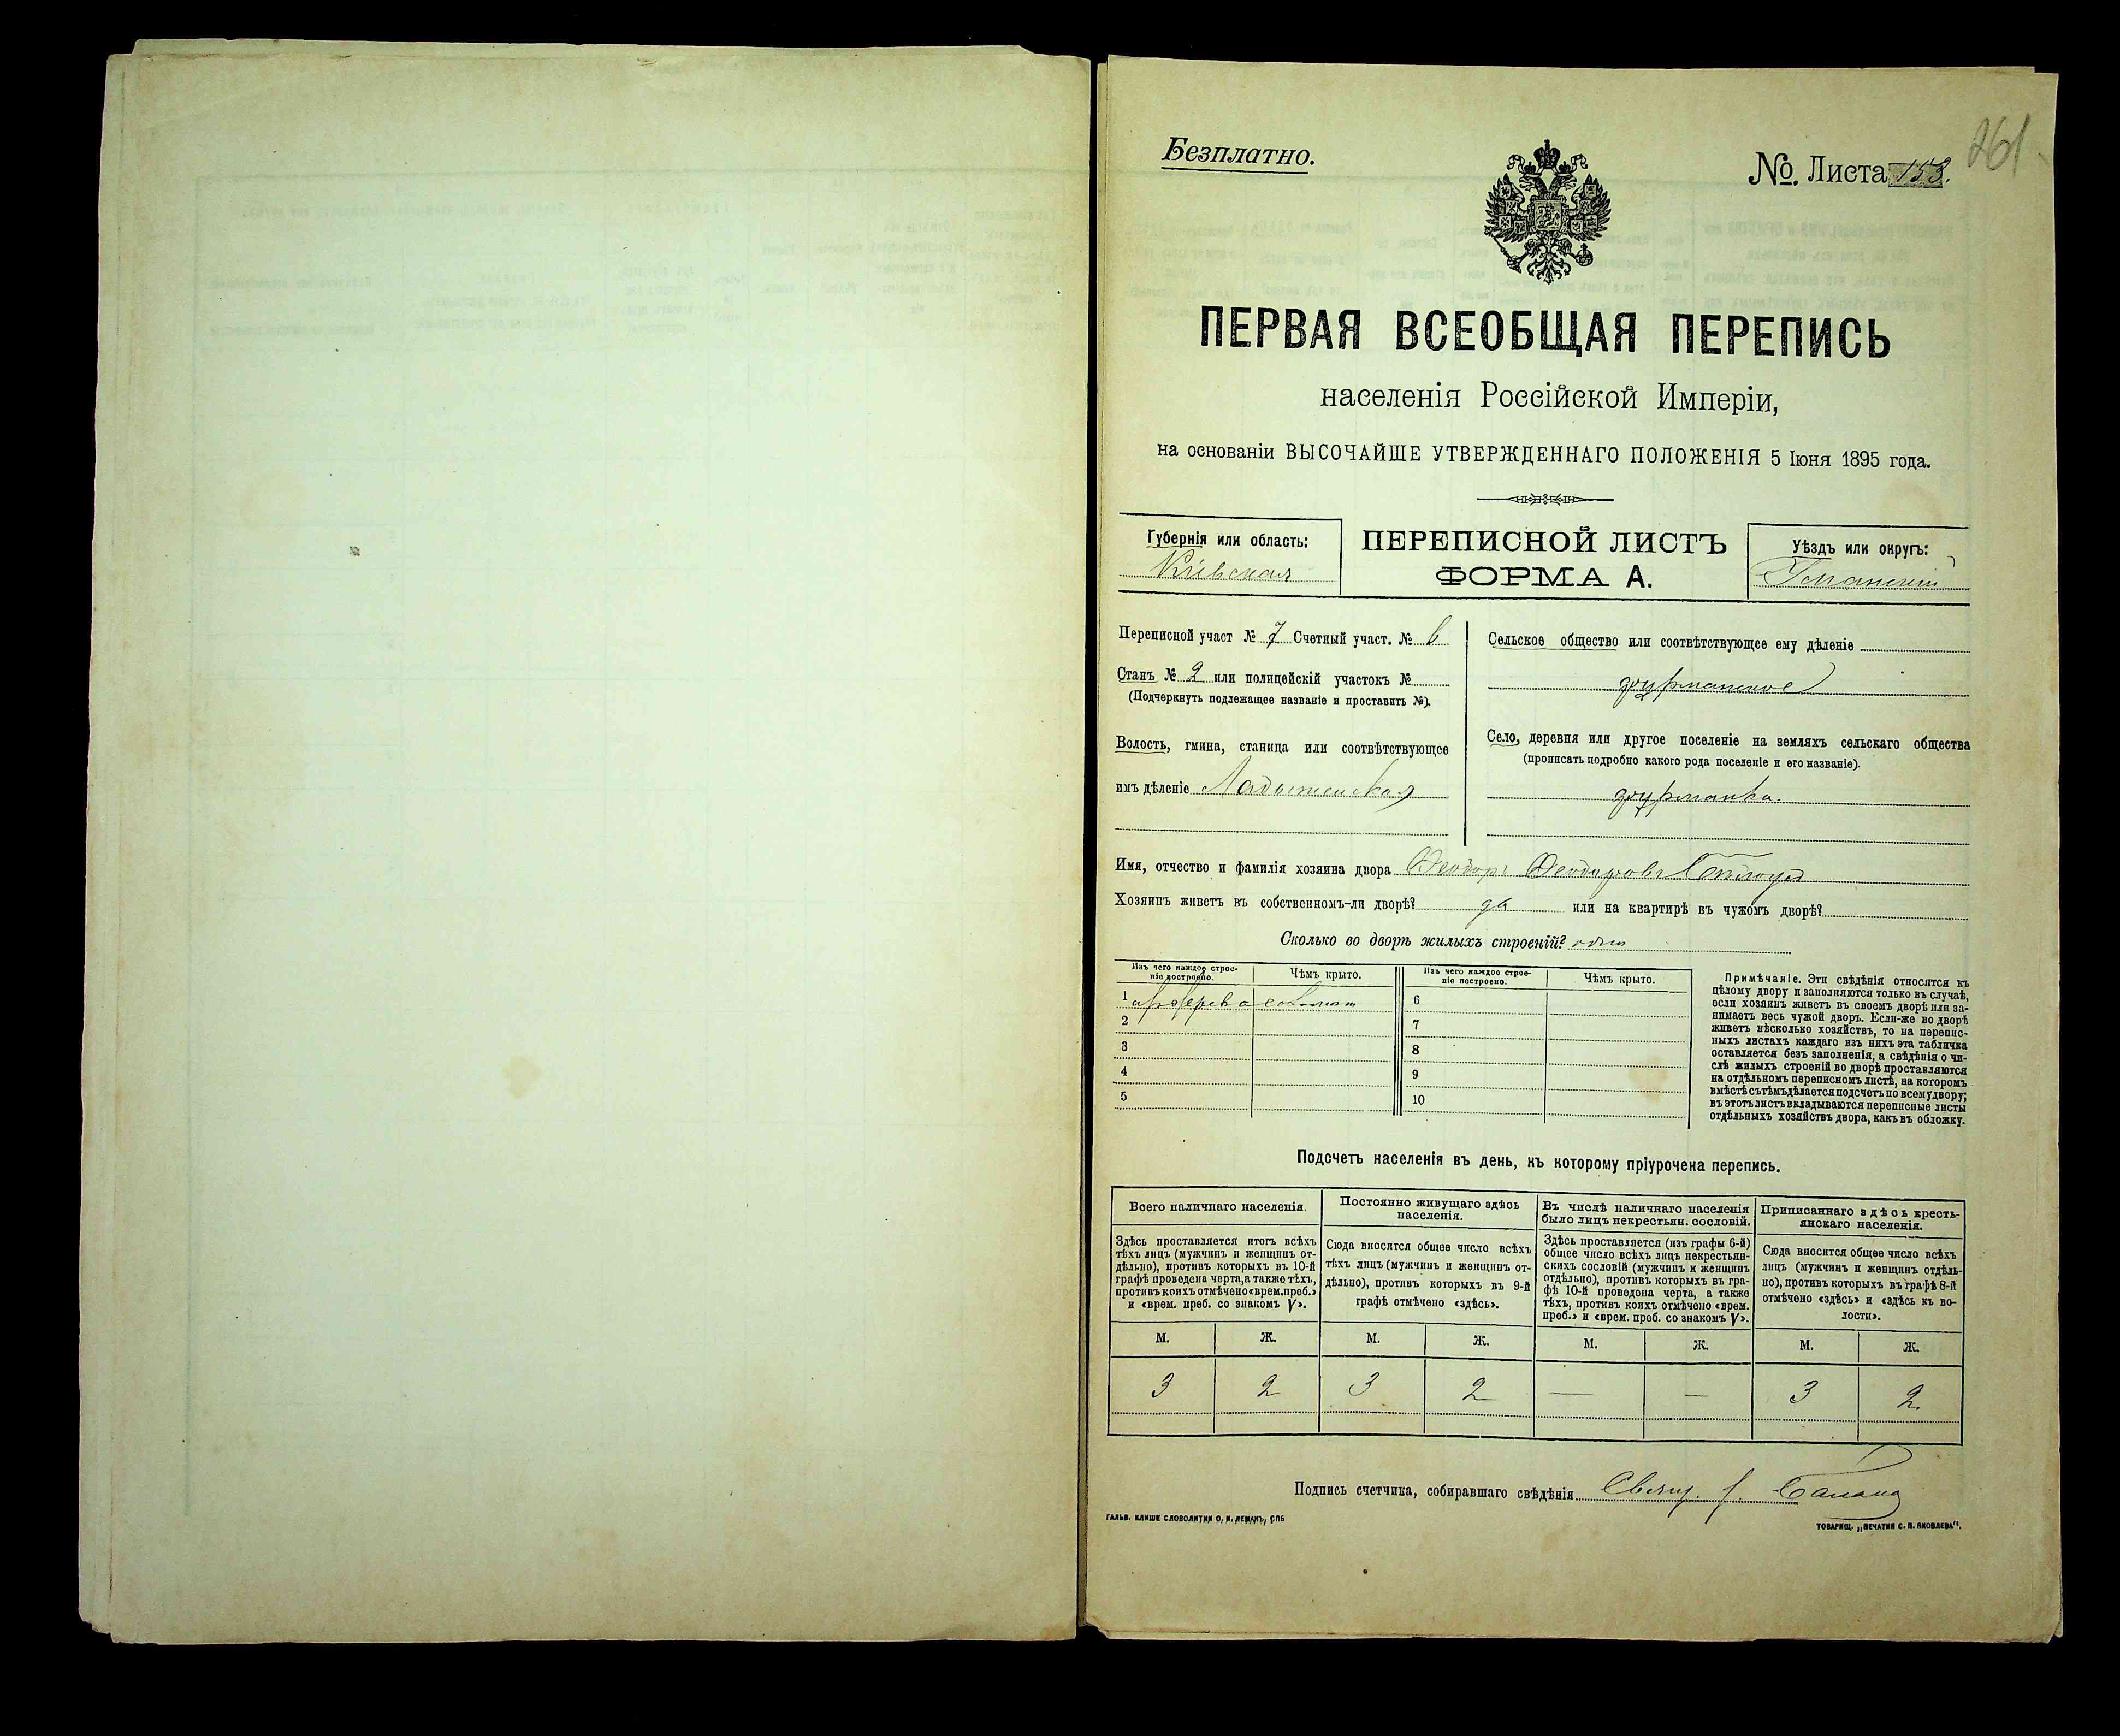 261
Безплатно.
№. Листа 153.
ПЕРВАЯ ВСЕОБЩАЯ ПЕРЕПИСЬ
населенія Россійской Имперіи,
на основаніи ВЫСОЧАЙШЕ УТВЕРЖДЕННАГО ПОЛОЖЕНІЯ 5 Іюня 1895 года.
Губернія или область:
Кіевская
ПЕРЕПИСНОЙ ЛИСТЪ
ФОРМА А.
Уѣздъ или округъ:
Уманскій
Переписной участ № 7 Счетный участ. № 6
Станъ № 2 или полицейскій участокъ №
(Подчеркнуть подлежащее названіе и проставить №).
Волость, гмина, станица или соотвѣтствующее
имъ дѣленіе Ладыженская
Сельское общество или соотвѣтствующее ему дѣленіе
Село, деревня или другое поселеніе на земляхъ сельскаго общества
(прописать подробно какого рода поселеніе и его названіе).
Имя, отчество и фамилія хозяина двора Феодоръ Феодоровъ
Хозяинъ живетъ въ собственномъ-ли дворѣ? да или на квартирѣ въ чужомъ дворѣ?
Сколько во дворѣ жилыхъ строеній? одно
Изъ чего каждое строе-
ніе построено.
Чѣмъ крыто.
Изъ чего каждое строе-
ніе построено.
Чѣмъ крыто.
1 изъ дерева соломою
2
3
4
5
6
7
8
9
10
Примѣчаніе. Эти свѣдѣнія относятся къ
цѣлому двору и заполняются только въ случаѣ,
если хозяинъ живетъ въ своемъ дворѣ или за-
нимаетъ весь чужой дворъ. Если-же во дворѣ
живетъ нѣсколько хозяйствъ, то на перепис-
ныхъ листахъ каждаго изъ нихъ эта табличка
оставляется безъ заполненія, а свѣдѣнія о чи-
слѣ жилыхъ строеній во дворѣ проставляются
на отдѣльномъ переписномъ листѣ, на которомъ
вмѣстѣ съ тѣмъ дѣлается подсчетъ по всему двору;
въ этотъ листъ вкладываются переписные листы
отдѣльныхъ хозяйствъ двора, какъ въ обложку.
Подсчетъ населенія въ день, къ которому пріурочена перепись.
Всего наличнаго населенія.
Здѣсь проставляется итогъ всѣхъ
тѣхъ лицъ (мужчинъ и женщинъ от-
дѣльно), противъ которыхъ въ 10-й
графѣ проведена черта, а также тѣхъ,
противъ коихъ отмѣчено «врем. преб.»
и «врем. преб. со знакомъ V».
Постоянно живущаго здѣсь
населенія.
Сюда вносится общее число всѣхъ
тѣхъ лицъ (мужчинъ и женщинъ от-
дѣльно), противъ которыхъ въ 9-й
графѣ отмѣчено «здѣсь».
Въ числѣ наличнаго населенія
было лицъ некрестьян. сословій.
Здѣсь проставляется (изъ графы 6-й)
общее число всѣхъ лицъ некрестьян-
скихъ сословій (мужчинъ и женщинъ
отдѣльно), противъ которыхъ въ гра-
фѣ 10-й проведена черта, а также
тѣхъ, противъ коихъ отмѣчено «врем.
преб.» и «врем. преб. со знакомъ V».
Приписаннаго здѣсь кресть-
янскаго населенія.
Сюда вносится общее число всѣхъ
лицъ (мужчинъ и женщинъ отдѣль-
но), противъ которыхъ въ графѣ 8-й
отмѣчено «здѣсь» и «здѣсь къ во-
лости».
М. Ж. М. Ж. М. Ж. М. Ж.
3 2 3 2 — — 3 2.
Подпись счетчика, собиравшаго свѣдѣнія Свящ.
ГАЛЬВ. КЛИШЕ СЛОВОЛИТНИ О. И. ЛЕМАНЪ, СПБ
ТОВАРИЩ. „ПЕЧАТНЯ С. П. ЯКОВЛЕВА".